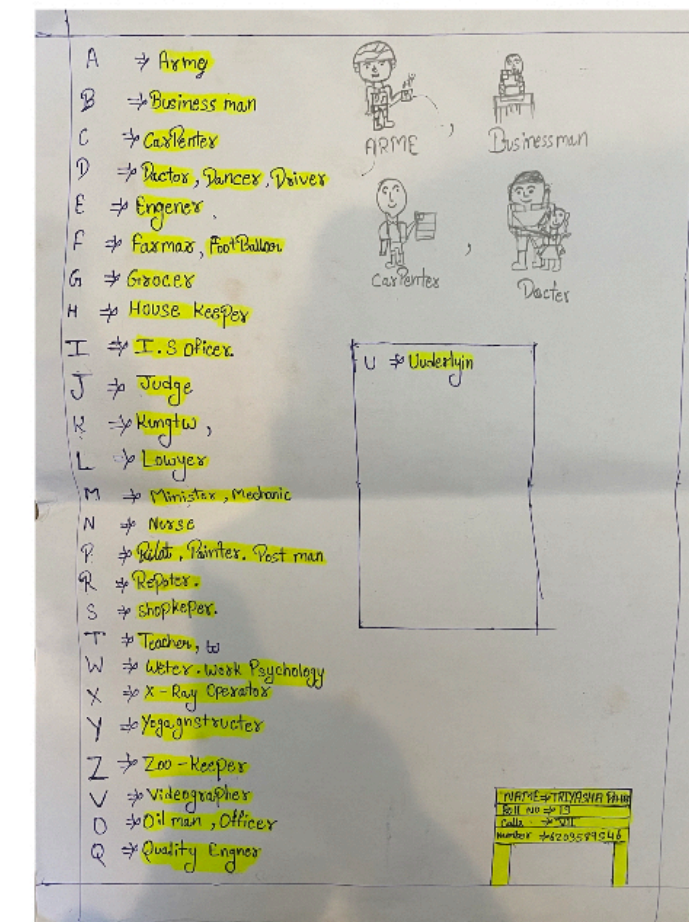 A ⇒ Army
B ⇒ Business man
C ⇒ CarPenter
D ⇒ Doctor, Dancer, Driver
E ⇒ Engener
F ⇒ Farmar, Foot Balloor
G ⇒ Grocer
H ⇒ House Keeper
I ⇒ I.S Oficer.
J ⇒ Judge
K ⇒ Kungtw,
L ⇒ Lowyer
M ⇒ Minister, Mechanic
N ⇒ Nurse
P ⇒ Painter. Post man
R ⇒ Repoter.
S ⇒ Shopkeper.
T ⇒ Teacher,
W ⇒ Weter. Work Psychology
X ⇒ X-Ray Operator
Y ⇒ Yogagnstructer
Z ⇒ Zoo-Keeper
V ⇒ Videographer
O ⇒ Oil man, Officer
Q ⇒ Quality Engner
ARME, Businessman
CarPenter, Docter
U ⇒ Uuderlyin
NAME ⇒ TRIYASHA
Roll No ⇒ 19
Calls ⇒ VII
Number ⇒ 6203589546